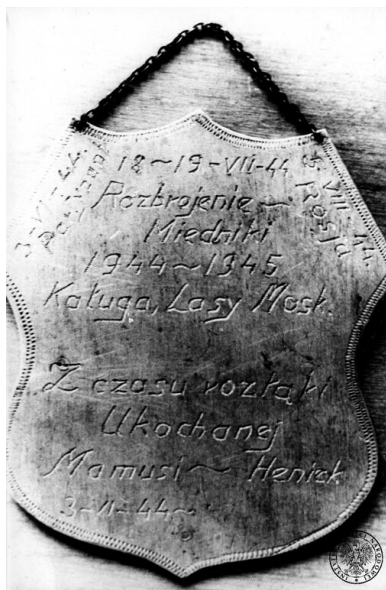 3-VI-44
Partyzant
18~19-VII-44
4-VIII-44.
Rosja
Rozbrojenie~
Miedniki
1944~1945
Kaługa, Lasy Mosk.
Z czasu rozłąki
Ukochanej
Mamusi~ Heniek
3-VI-44~